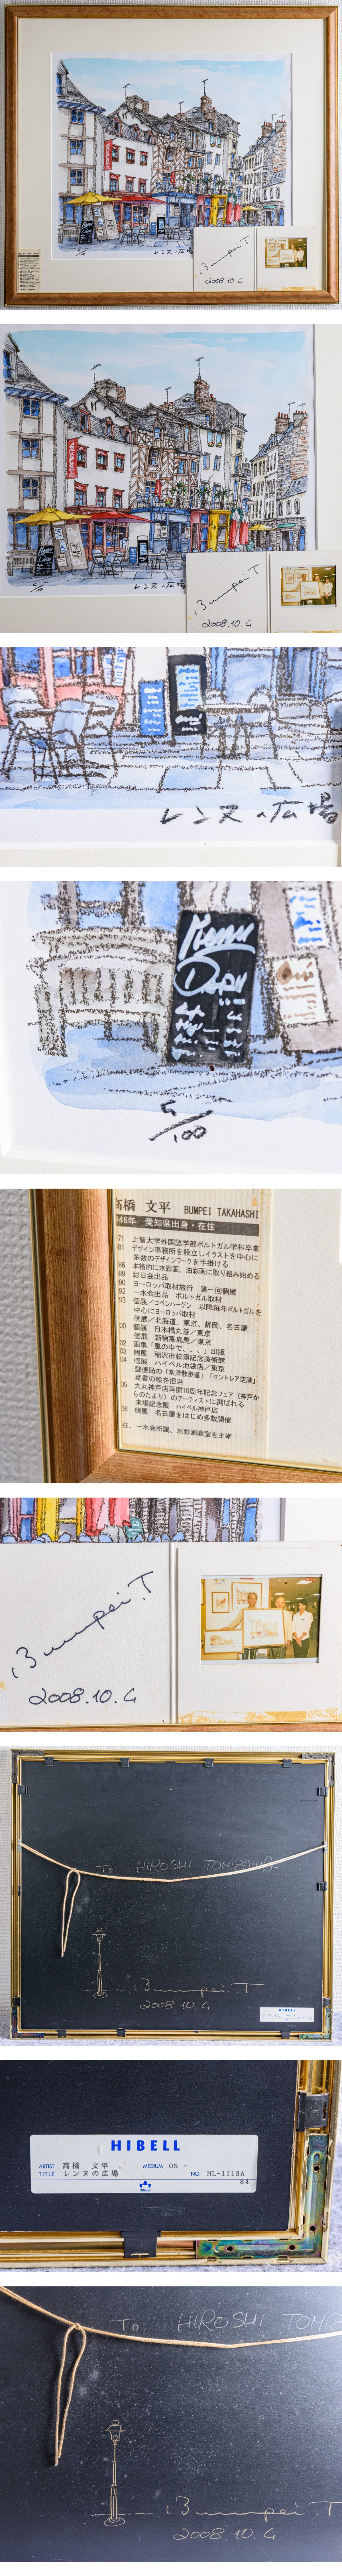 レンヌの広場
Bumpei.T
2008.10.4
レンヌの広場
Bumpei.T
2008.10.4
レンヌの広場
Menu
5/100
高橋 文平 BUMPEI TAKAHASHI
946年 愛知県出身・在住
71 上智大学外国語学部ポルトガル学科卒業
81 デザイン事務所を設立しイラストを中心に
多数のデザインワークを手掛ける
86 本格的に水彩画、油彩画に取り組み始める
89 彩日会出品
90 ヨーロッパ取材旅行 第一回個展
92 一水会出品 ポルトガル取材
93 個展/コペンハーゲン 以降毎年ポルトガルを
中心にヨーロッパ取材
個展/北海道、東京、静岡、名古屋
00 個展 日本橋丸善/東京
個展 新宿高島屋/東京
02 画集「風の中で、、、」出版
03 個展 稲沢市荻須記念美術館
04 個展 ハイベル池袋店/東京
郵便局の「常滑散歩道」「セントレア空港」
葉書の絵を担当
05 大丸神戸店再開10周年記念フェア(神戸か
らのたより)のアーティストに選ばれる
来場記念展 ハイベル神戸店
06 個展 名古屋をはじめ多数開催
在、一水会所属、水彩画教室を主宰
Bumpei.T
2008.10.4
To. HIROSHI TOMIZAWA
Bumpei.T
2008.10.4
HIBELL
HIBELL
ARTIST 高橋 文平 MEDIUM OS -
TITLE レンヌの広場 NO. HL-1113A
84
To. HIROSHI TOMIZ
Bumpei.T
2008.10.4